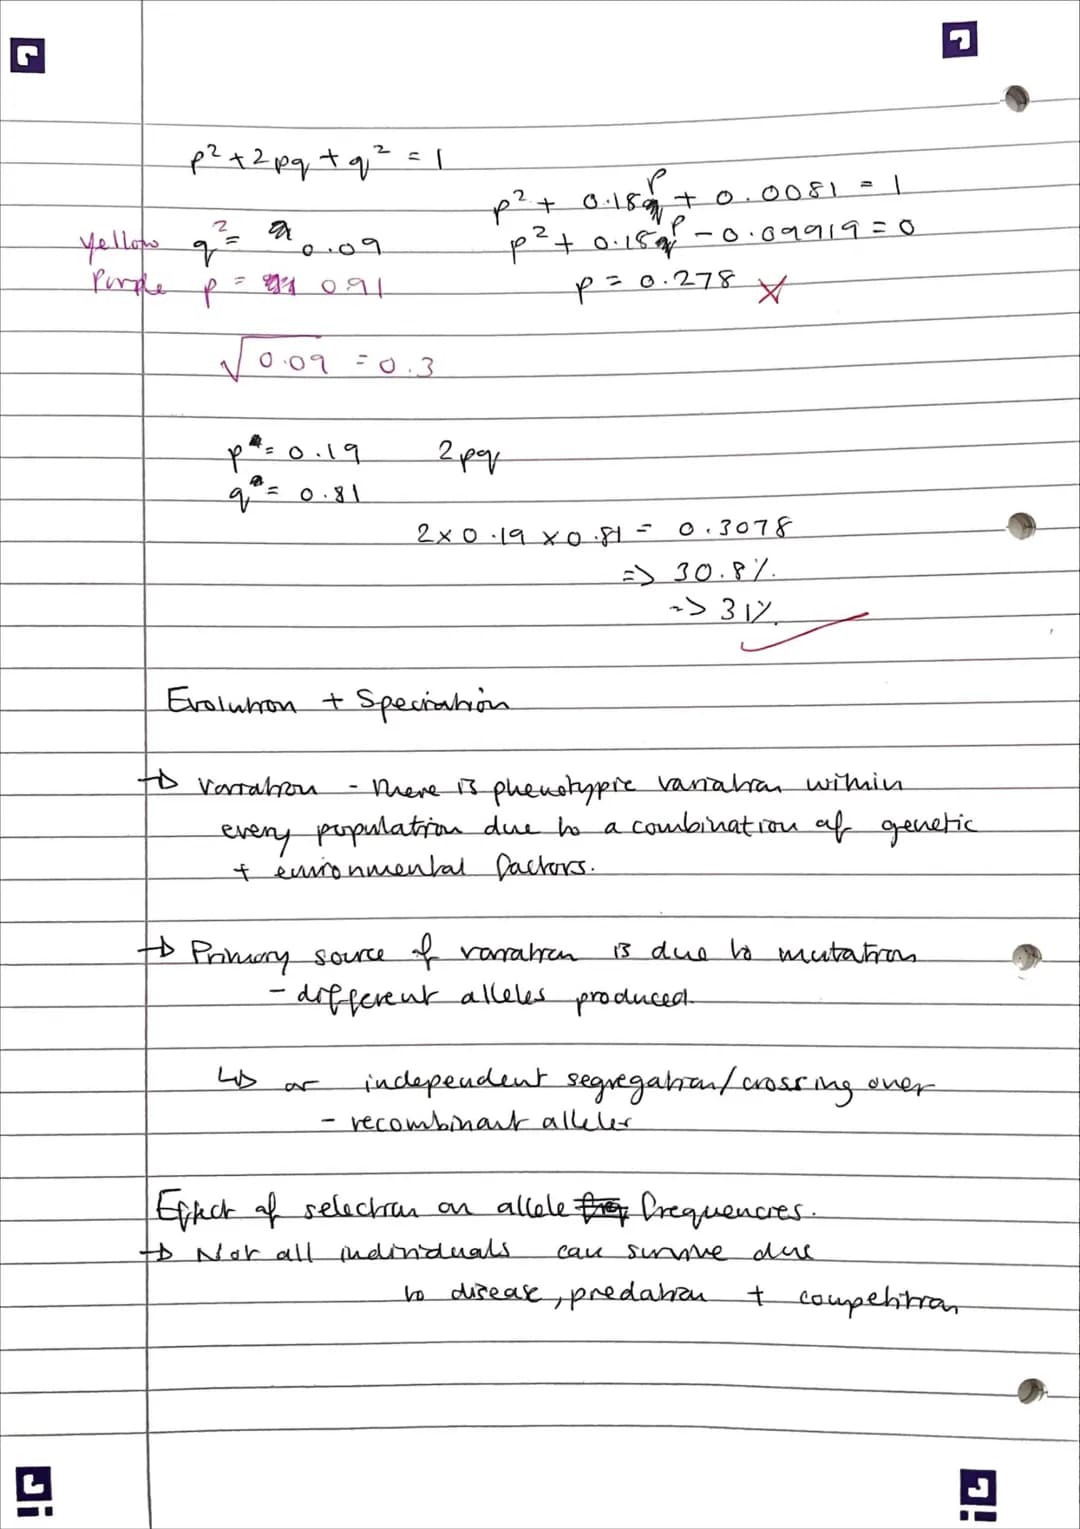 p² + 2pq + q² = 1
p² + 0.18p + 0.0081 = 1
yellow q² = 0.09
p² + 0.18p - 0.09919 = 0
Purple p = 0.91
p = 0.278 ✗
√0.09 = 0.3
p = 0.19 2pq
q = 0.81
2 × 0.19 × 0.81 = 0.3078
=> 30.8%.
-> 31%. ✓
Evolution + Speciation
→ Variation - there is phenotypic variation within
every population due to a combination of genetic
+ environmental factors.
→ Primary source of variation is due to mutation
- different alleles produced.
↳ or independent segregation/crossing over
- recombinant alleles
Effect of selection on allele freq frequencies.
→ Not all individuals can survive due
to disease, predation + competition